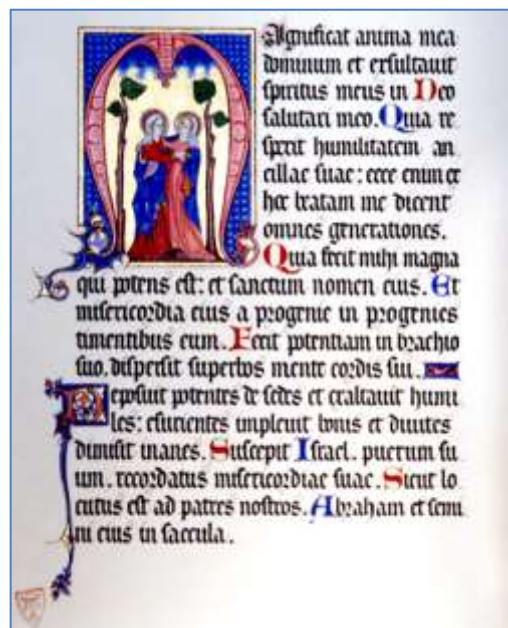 Magnificat anima mea
dominum et exsultauit
spiritus meus in Deo
salutari meo. Quia re
spexit humilitatem an
cillae suae: ecce enim ex
hoc beatam me dicent
omnes generationes.
Quia fecit mihi magna
qui potens est: et sanctum nomen eius. Et
misericordia eius a progenie in progenies
timentibus eum. Fecit potentiam in brachio
suo. dispersit superbos mente cordis sui.
Deposuit potentes de sedes et exaltauit humi
les: esurientes impleuit bonis et diuites
dimisit inanes. Suscepit Israel. puerum su
um. recordatus misericordiae suae. Sicut lo
cutus est ad patres nostros. Abraham et semi
ni eius in saecula.